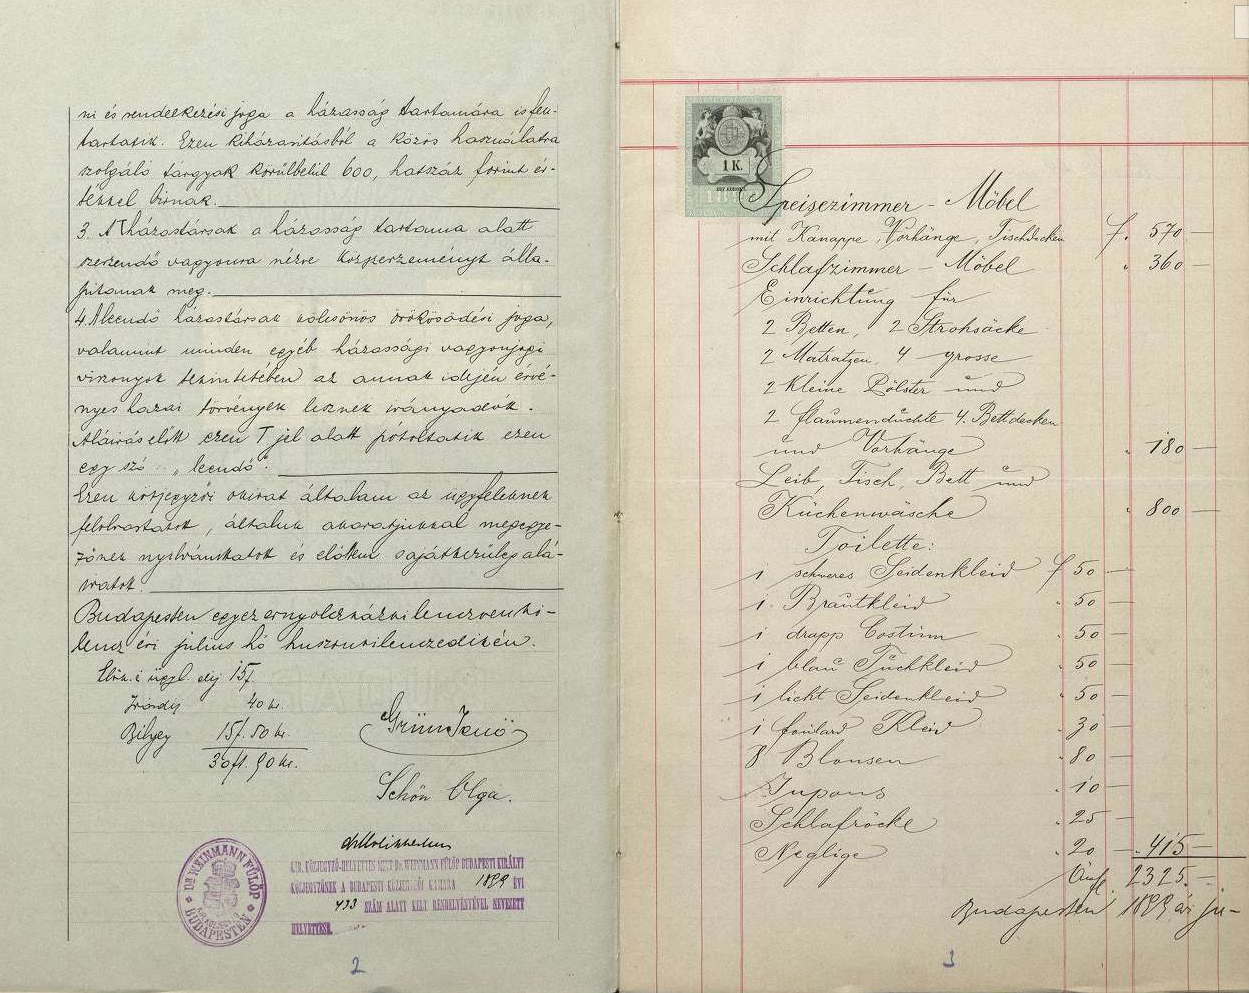 ni és rendelkezési joga a házasság tartamára is fen-
tartatik. Ezen kiházasitásból a közös használatra
szolgáló tárgyak körülbelül 600, hatszáz forint ér-
tékkel birnak.
3. A házastársak a házasság tartama alatt
szerzendő vagyonra nézve közszerzeményt álla-
pitanak meg.
4. A leendő házastársak kölcsönös öröködési joga,
valamint minden egyéb házassági vagyonjogi
viszonyok tekintetében az annak idején érvé-
nyes hazai törvények lesznek irányadók.
Aláirás előtt ezen T jel alatt pótoltatik ezen
egy szó "leendő".
Ezen közjegyzői okirat általam az ügyfeleknek
felolvastatott, általuk akaratjukkal megegye-
zőnek nyilvánittatott és előttem sajátkezüleg alá-
iratott.
Budapesten egyezernyolczszázkilenczvenki-
lencz évi július hó huszonkilenczedikén.
ügyl. dij 15f.
Irásdij 40 kr.
Bélyeg 15f. 50 kr.
30 ft. 90 kr.
Grün Jenő
Schön Olga.
KIR. KÖZJEGYZŐ-HELYETTES MINT Dr. WEINMANN FÜLÖP BUDAPESTI KIRÁLYI
KÖZJEGYZŐNEK A BUDAPESTI KÖZJEGYZŐI KAMARA 1899 ÉVI
433 SZÁM ALATT KELT RENDELVÉNYÉVEL NEVEZETT
HELYETTESE.
Dr WEINMANN FÜLÖP
BUDAPESTEN
2
1 K.
EGY KORONA
Speisezimmer - Möbel
mit Kanappe, Vorhänge, Tischdecken f. 570 —
Schlafzimmer - Möbel " 360 —
Einrichtung für
2 Betten, 2 Strohsäcke
2 Matratzen, 4 grosse
2 kleine Pölster und
2 flaumendüchte 4 Bettdecken
und Vorhänge " 180 —
Leib, Tisch, Bett und
Küchenwäsche " 800 —
Toilette:
1 schweres Seidenkleid f 50 —
1 Brautkleid " 50 —
1 drapp Costüm " 50 —
1 blau Tuchkleid " 50 —
1 licht Seidenkleid " 50 —
1 foulard Kleid " 30 —
8 Blousen " 80 —
Jupons " 10 —
Schlafröcke " 25 —
Neglige " 20 — " 415 —
fl. 2325 —
Budapesten 1899 évi ju-
3